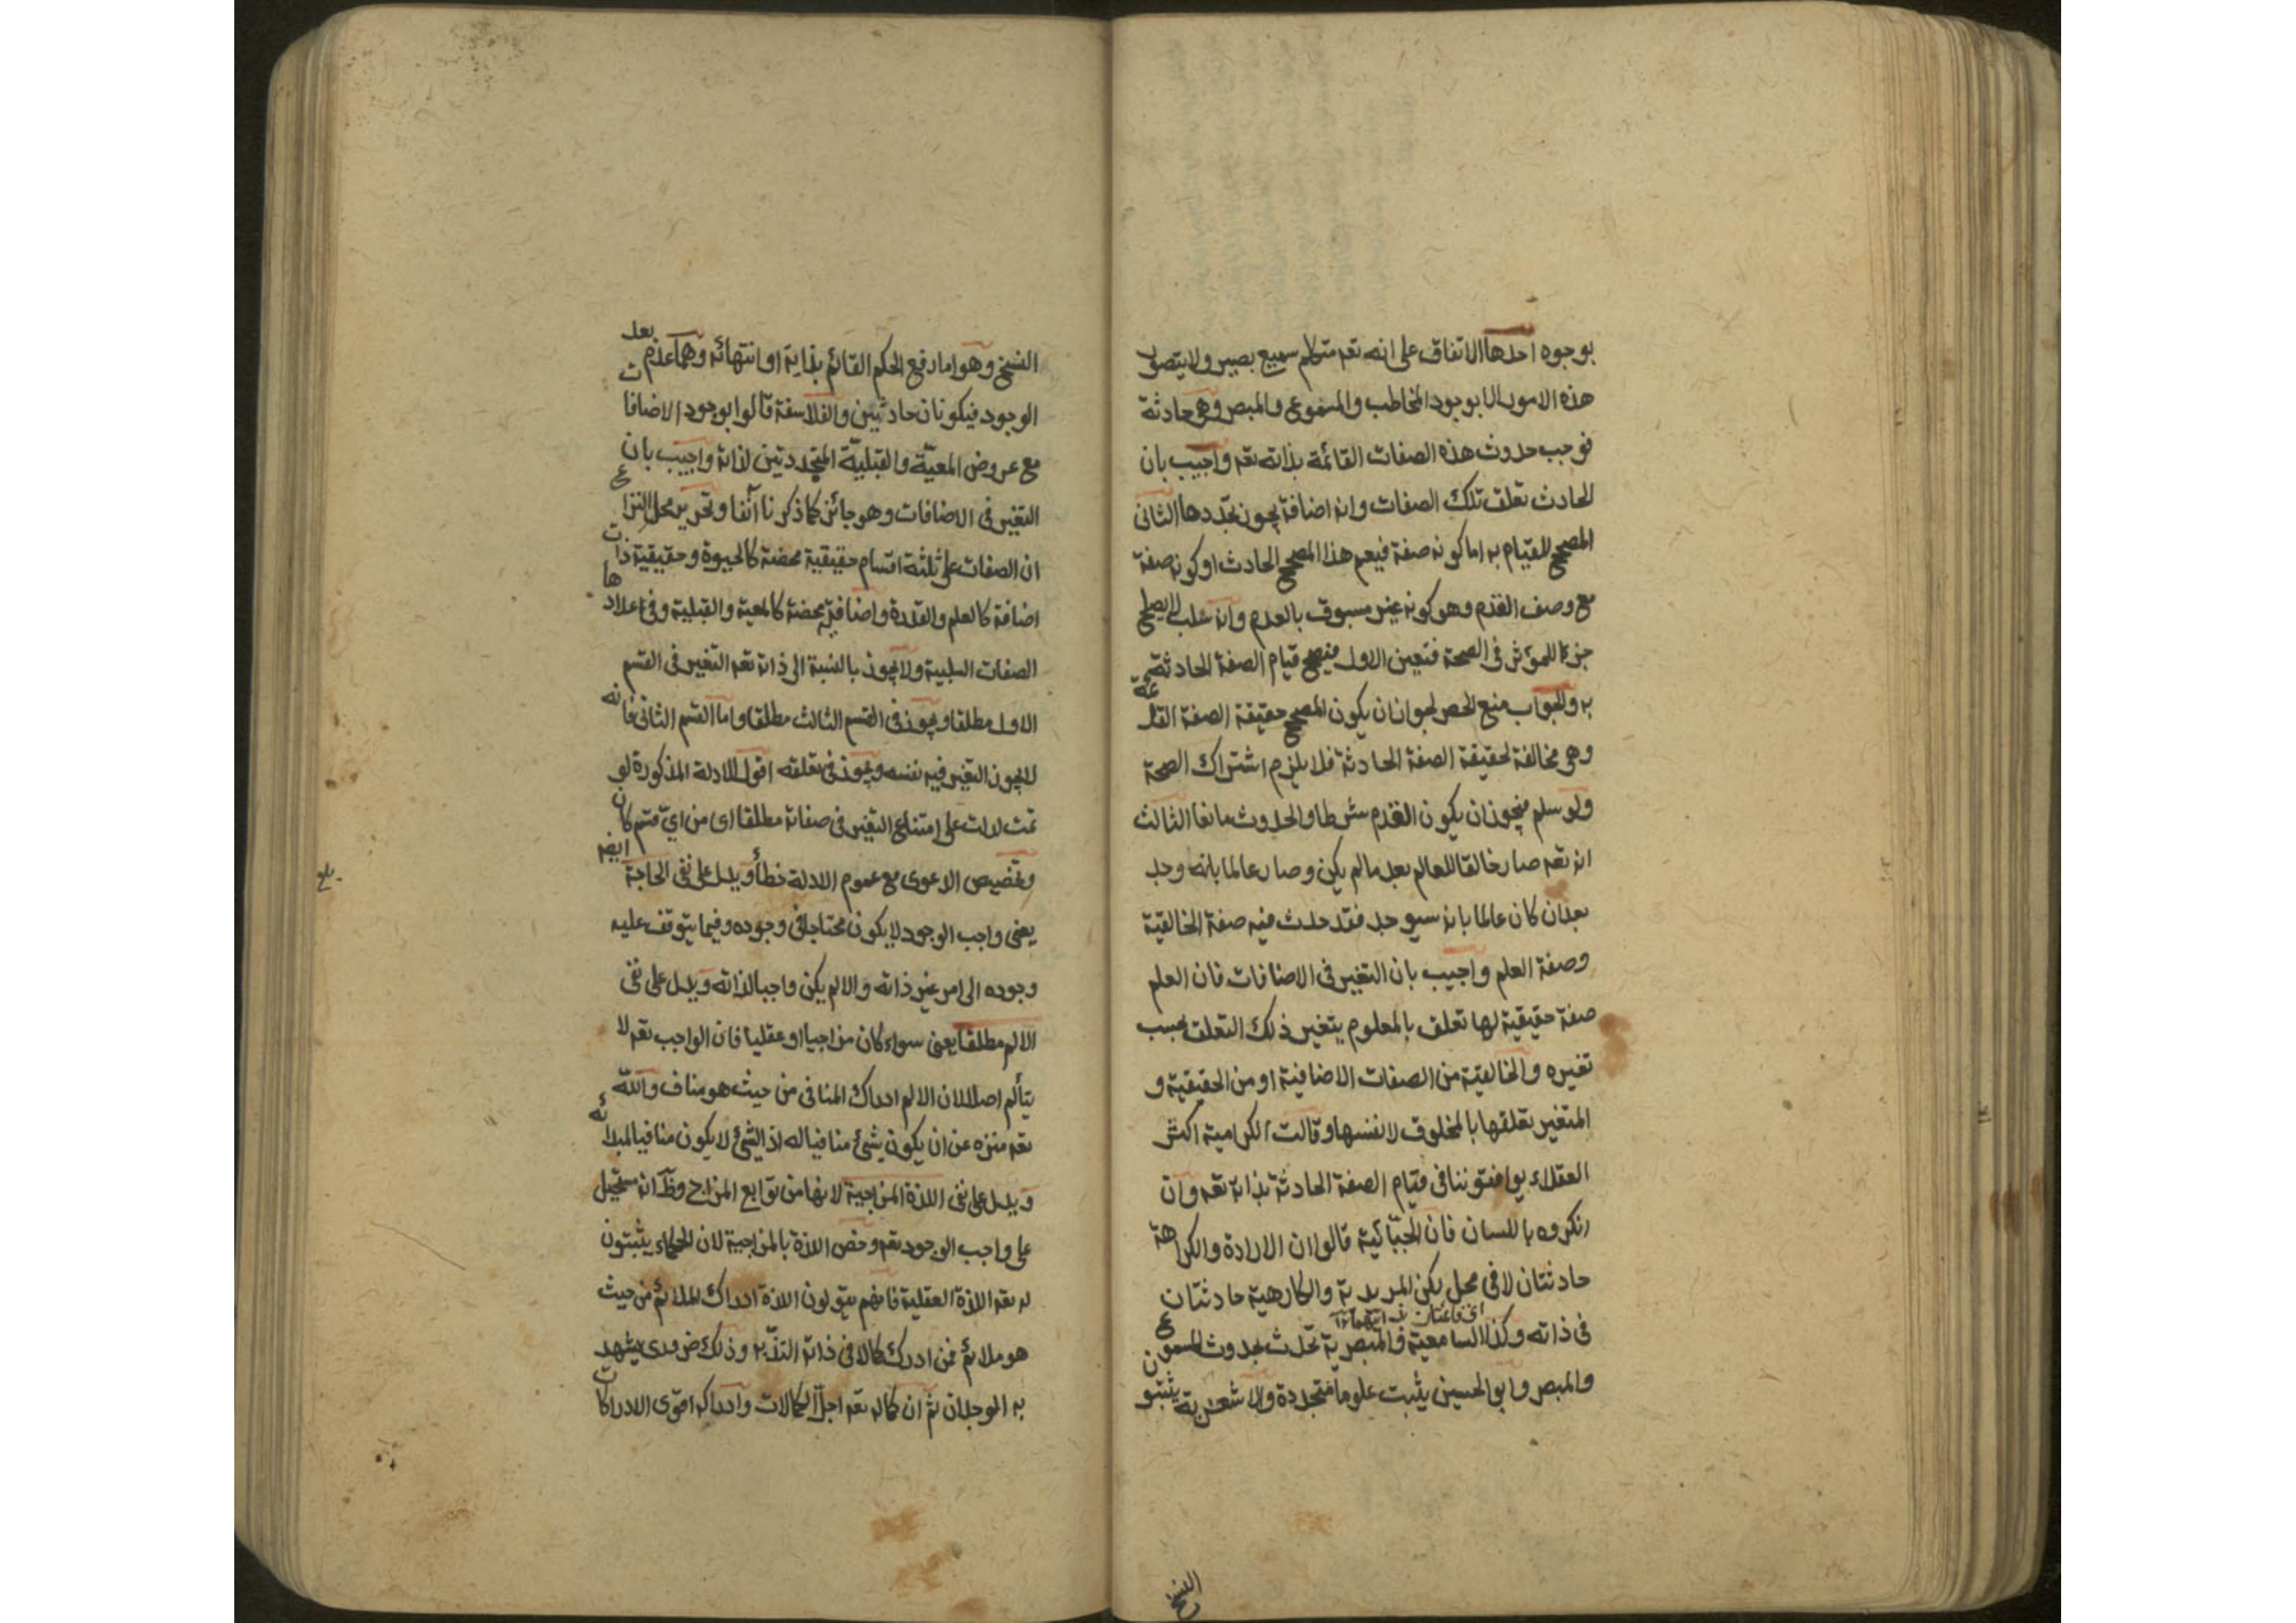 بوجوه احدها الاتفاق على انه تعه متكلم سميع بصير ولا يتصور
هذه الامور الا بوجود المخاطب والمسموع والمبصر وهى حادثة
فوجب حدوث هذه الصفات القائمة بذاته تعه واجيب بان
الحادث تعلق تلك الصفات وانه اضافة يجوز تجددها الثانى
المصحح للقيام به اما كونه صفة فيعم هذا المصحح الحادث او كونه صفة
مع وصف القدم وهو كونه غير مسبوق بالعدم وانه سلب لا يصلح
جزءا للمؤثر فى الصحة فتعين الاول فيصح قيام الصفة الحادثة
به والجواب منع الحصر لجواز ان يكون المصحح حقيقة الصفة القديمة
وهى مخالفة لحقيقة الصفة الحادثة فلا يلزم اشتراك الصحة
ولو سلم فيجوز ان يكون القدم شرطا والحدوث مانعا الثالث
انه تعه صار خالقا للعالم بعد ما لم يكن وصار عالما بانه وجد
بعد ان كان عالما بانه سيوجد فقد حدث فيه صفة الخالقية
وصفة العلم واجيب بان التغير فى الاضافات فان العلم
صفة حقيقية لها تعلق بالمعلوم يتغير ذلك التعلق بحسب
تغيره والخالقية من الصفات الاضافية او من الحقيقية و
المتغير تعلقها بالمخلوق لا نفسها وقالت الكرامية اكثر
العقلاء يوافقوننا فى قيام الصفة الحادثة بذاته تعه وان
انكروه باللسان فان الجبّائية قالوا ان الارادة والكراهة
حادثتان لا فى محل لكن المريدية والكارهية حادثتان
فى ذاته وكذا السامعية والمبصرية تحدث بحدوث المسموع
والمبصر وابو الحسين يثبت علوما متجددة والاشعرية يثبتون
النسخ
النسخ وهو اما رفع الحكم القائم بذاته او انتهائه وهما عدم بعد
الوجود فيكونان حادثين والفلاسفة قالوا بوجود الاضافات
مع عروض المعيّة والقبليّة المتجددتين لذاته واجيب بان
التغير فى الاضافات وهو جائز كما ذكرنا آنفا وتحرير محل النزاع
ان الصفات على ثلثة اقسام حقيقية محضة كالحيوة وحقيقية ذات
اضافة كالعلم والقدرة واضافية محضة كالمعية والقبلية وفى اعدادها
الصفات السلبية ولا يجوز بالنسبة الى ذاته تعه التغير فى القسم
الاول مطلقا ويجوز فى القسم الثالث مطلقا واما القسم الثانى فانه
لا يجوز التغير فيه نفسه ويجوز فى تعلقه اقول الادلة المذكورة لو
تمت لدلت على امتناع التغير فى صفاته مطلقا اى من اىّ قسم كان
وتخصيص الدعوى مع عموم الادلة خطأ ويدل على نفى الحاجة ايضا
يعنى واجب الوجود لا يكون محتاجا فى وجوده وفيما يتوقف عليه
وجوده الى امر غير ذاته والا لم يكن واجبا لذاته ويدل على نفى
الالم مطلقا يعنى سواء كان مزاجيا او عقليا فان الواجب تعه لا
يتألم اصلا لان الالم ادراك المنافى من حيث هو مناف والله
تعه منزه عن ان يكون شئ منافيا له اذ الشئ لا يكون منافيا لمبدائه
ويدل على نفى اللذة المزاجية لانها من توابع المزاج وظّ انه مستحيل
على واجب الوجود تعه وخص اللذة بالمزاجية لان الحكماء يثبتون
له تعه اللذة العقلية فانهم يقولون اللذة ادراك الملائم من حيث
هو ملائم فمن ادرك كمالا فى ذاته التذّ به وذلك ضرورى يشهد
به الوجدان ثم ان كماله تعه اجلّ الكمالات وادراكه اقوى الادراكات